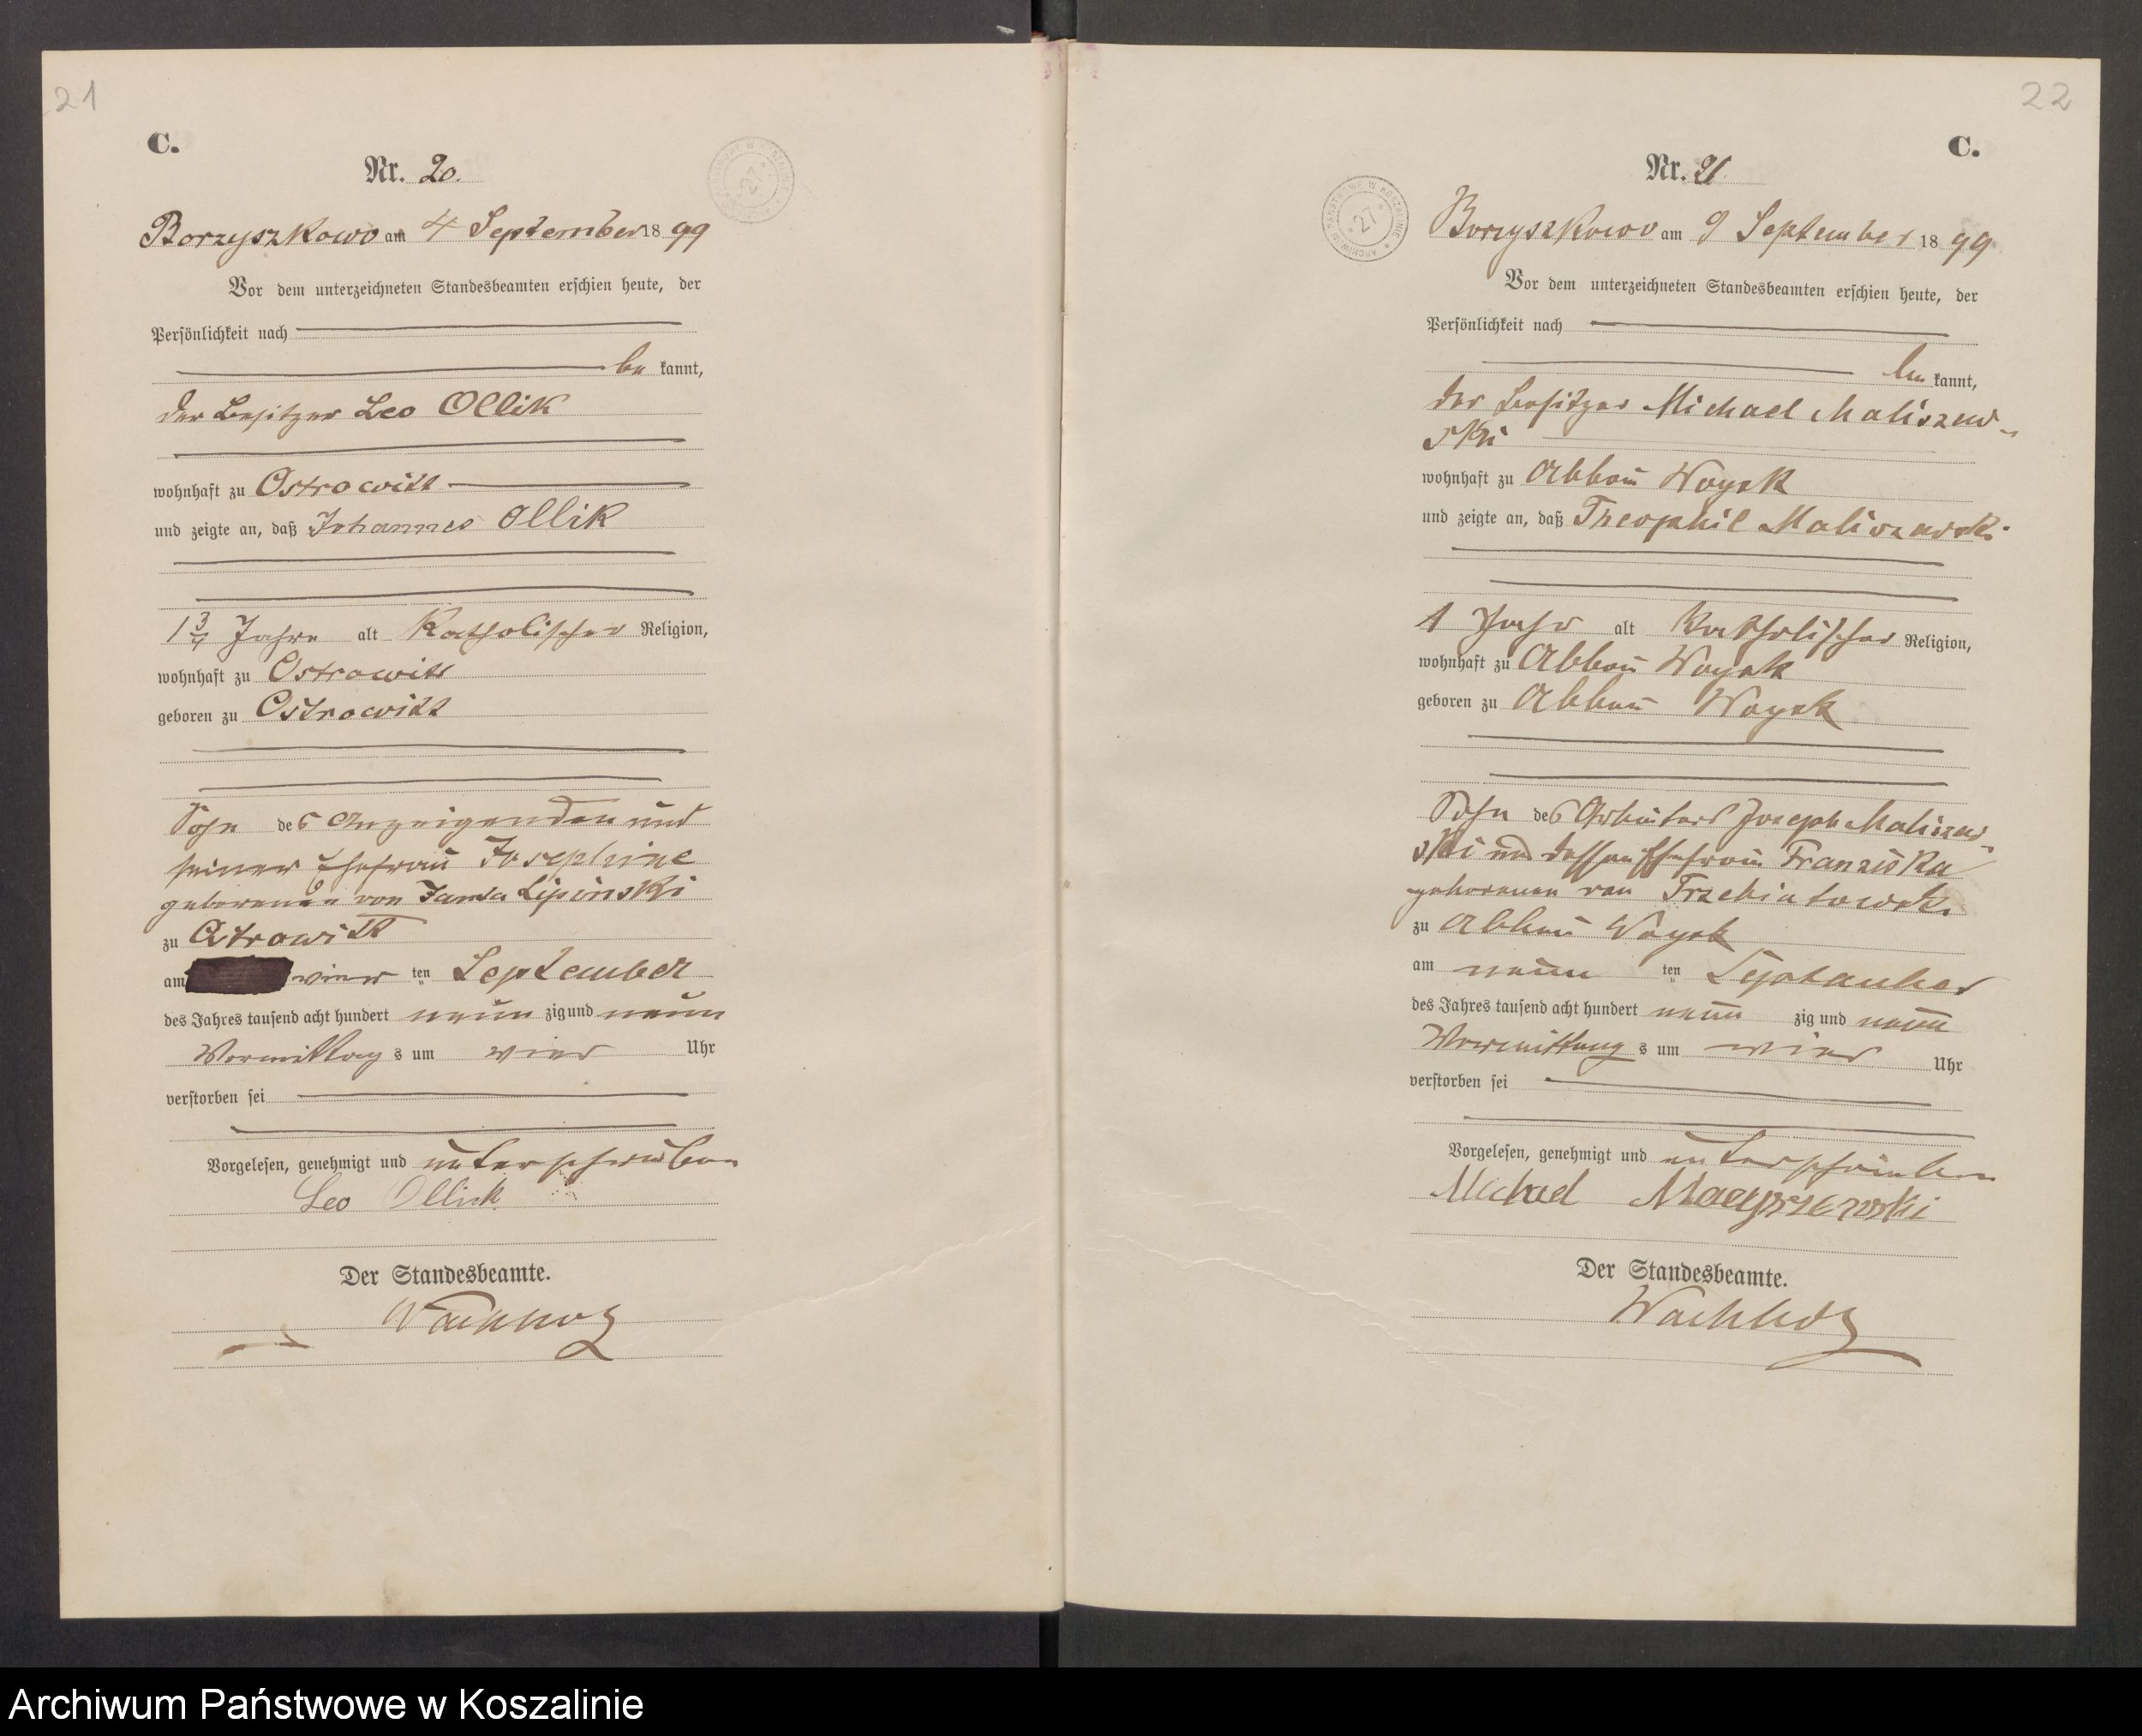 21
C.
Nr. 20.
Borzyszkowo am 4 September 18 99
Vor dem unterzeichneten Standesbeamten erschien heute, der
Persönlichkeit nach
be kannt,
der Besitzer Leo Ollik
wohnhaft zu Ostrowitt
und zeigte an, daß Johannes Ollik
1 3/4 Jahre alt Katholischer Religion,
wohnhaft zu Ostrowitt
geboren zu Ostrowitt
Sohn des Anzeigenden und
seiner Ehefrau Josephine
geborenen von Janta Lipinski
zu Ostrowitt
am vier ten September
des Jahres tausend acht hundert neun zig und neun
Vormittag s um vier Uhr
verstorben sei
Vorgelesen, genehmigt und unterschrieben
Leo Ollick
Der Standesbeamte.
Wachholz
22
C.
Nr. 21
ARCHIWUM PAŃSTWOWE W KOSZALINIE
27
Borzyszkowo am 9 September 18 99
Vor dem unterzeichneten Standesbeamten erschien heute, der
Persönlichkeit nach
be kannt,
der Besitzer Michael Maliszew-
ski
wohnhaft zu Abbau Woysk
und zeigte an, daß Theophil Maliszewski
1 Jahr alt Katholischer Religion,
wohnhaft zu Abbau Woysk
geboren zu Abbau Woysk
Sohn des Arbeiters Joseph Maliszew-
ski und dessen Ehefrau Franziska
geborenen von Trzebiatowski
zu Abbau Woysk
am neun ten September
des Jahres tausend acht hundert neun zig und neun
Vormittag s um vier Uhr
verstorben sei
Vorgelesen, genehmigt und unterschrieben
Michael
Der Standesbeamte.
Wachholz
Archiwum Państwowe w Koszalinie